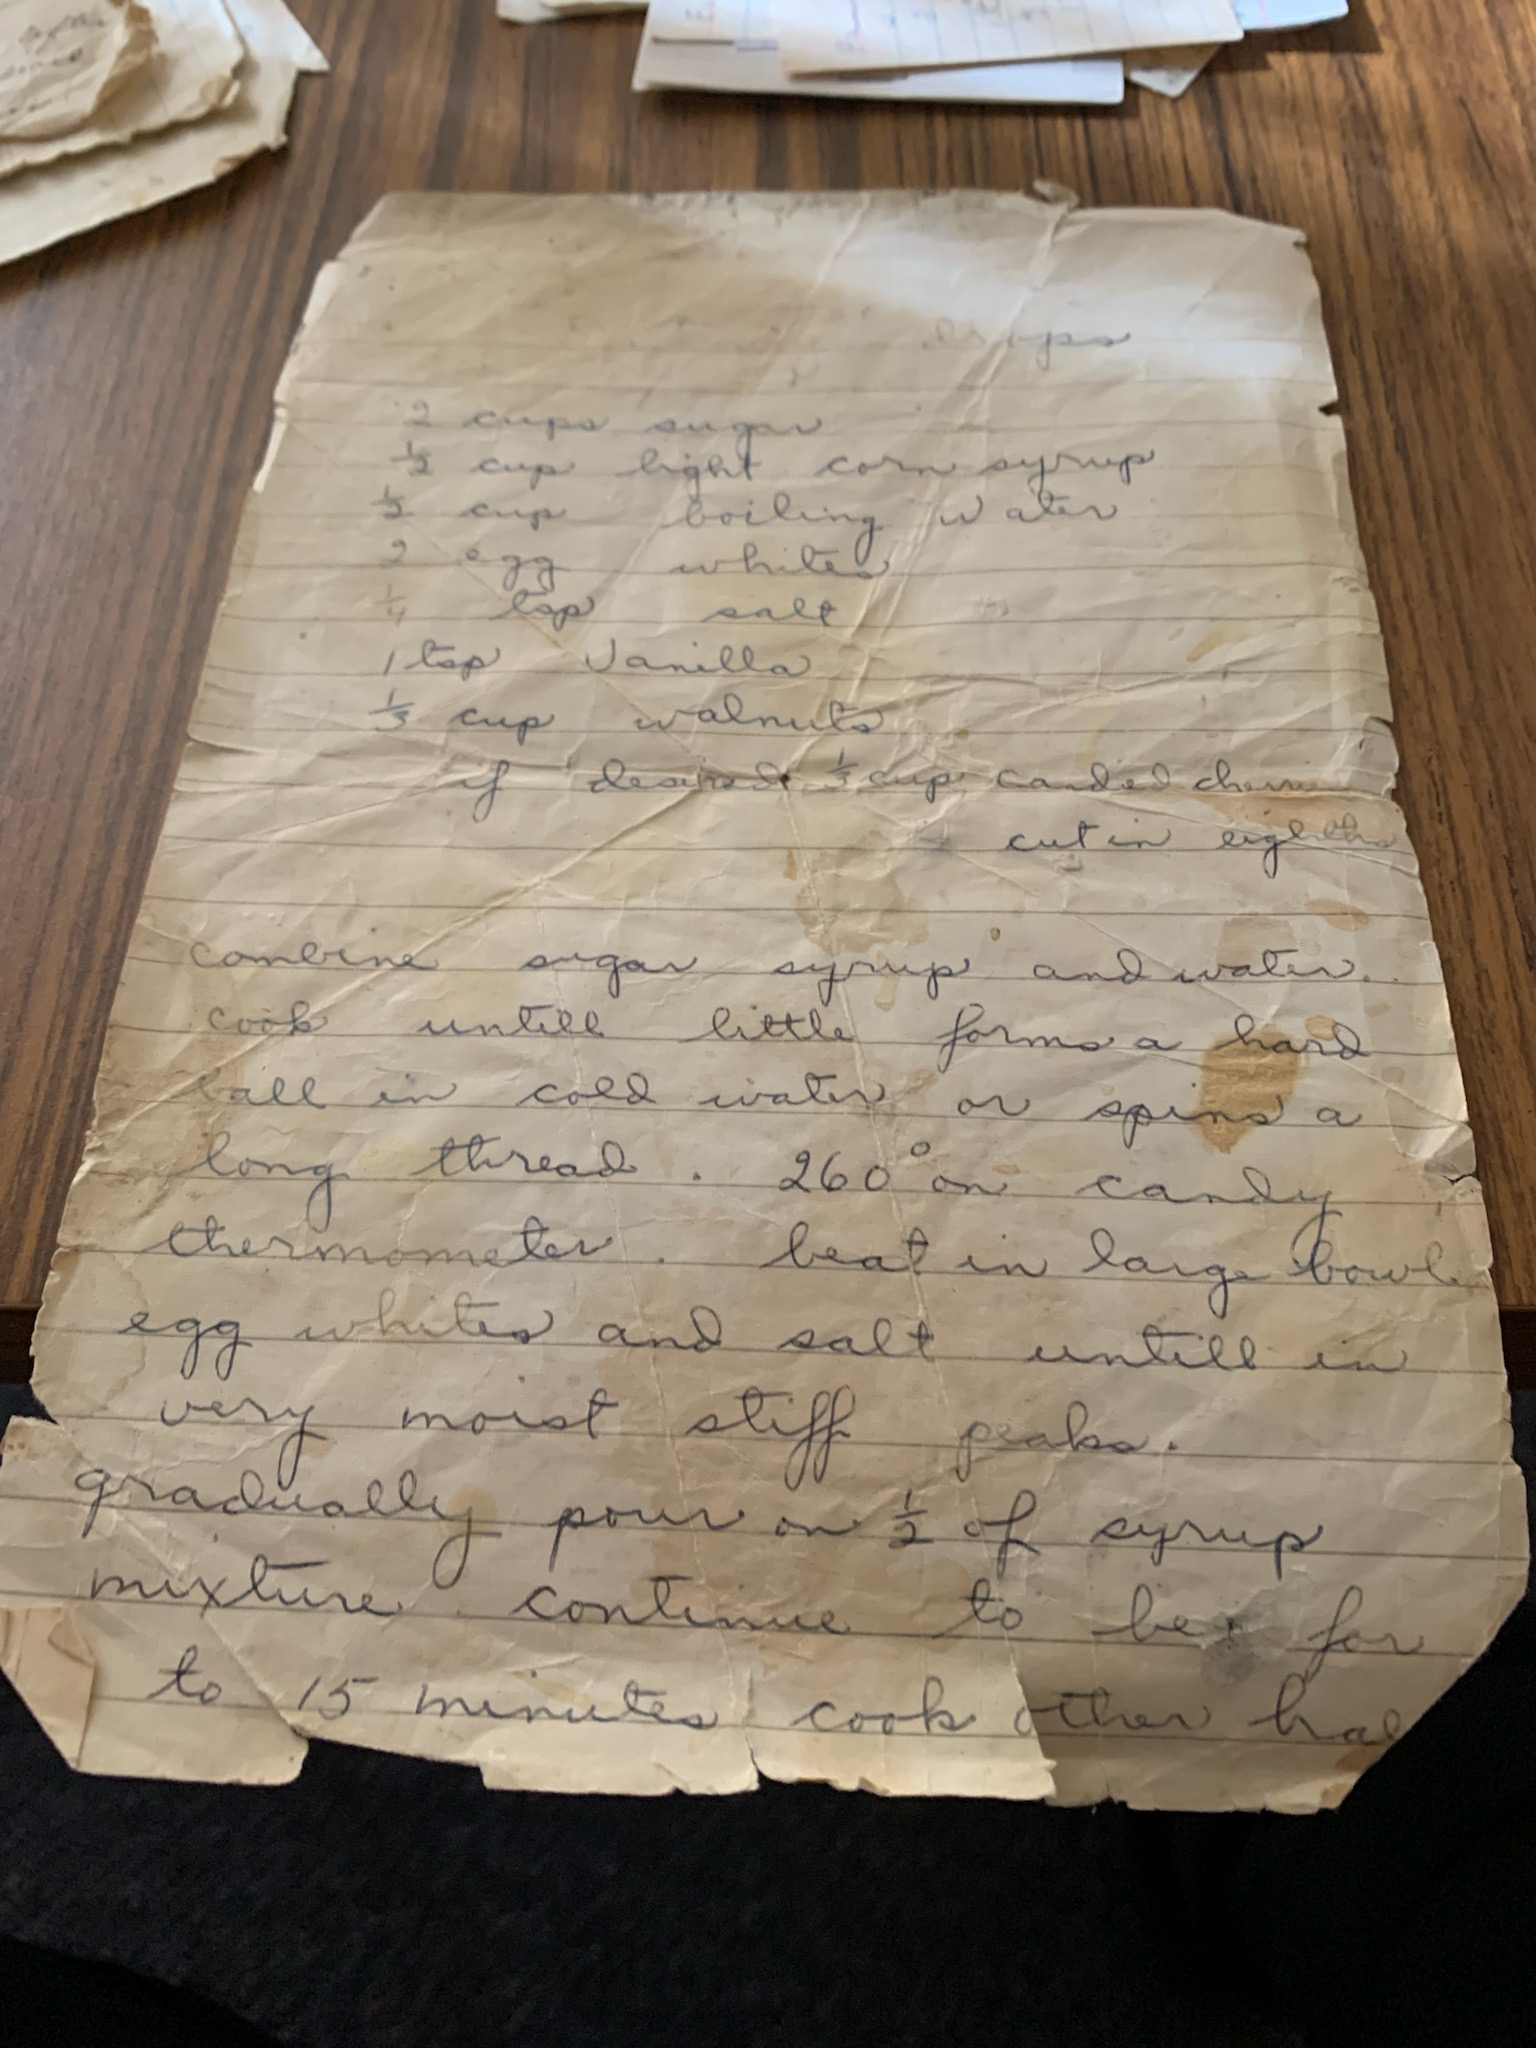 drops
2 cups sugar
1/2 cup light corn syrup
1/2 cup boiling water
2 egg whites
1/4 tsp salt
1 tsp Vanilla
1/3 cup walnuts
if desired 1/3 cup candied
cut in eighths
combine sugar syrup and water.
cook untill little forms a hard
ball in cold water or spins a
long thread. 260° on candy
thermometer. beat in large bowl
egg whites and salt untill in
very moist stiff peaks.
gradually pour on 1/2 of syrup
mixture continue to for
to 15 minutes cook other